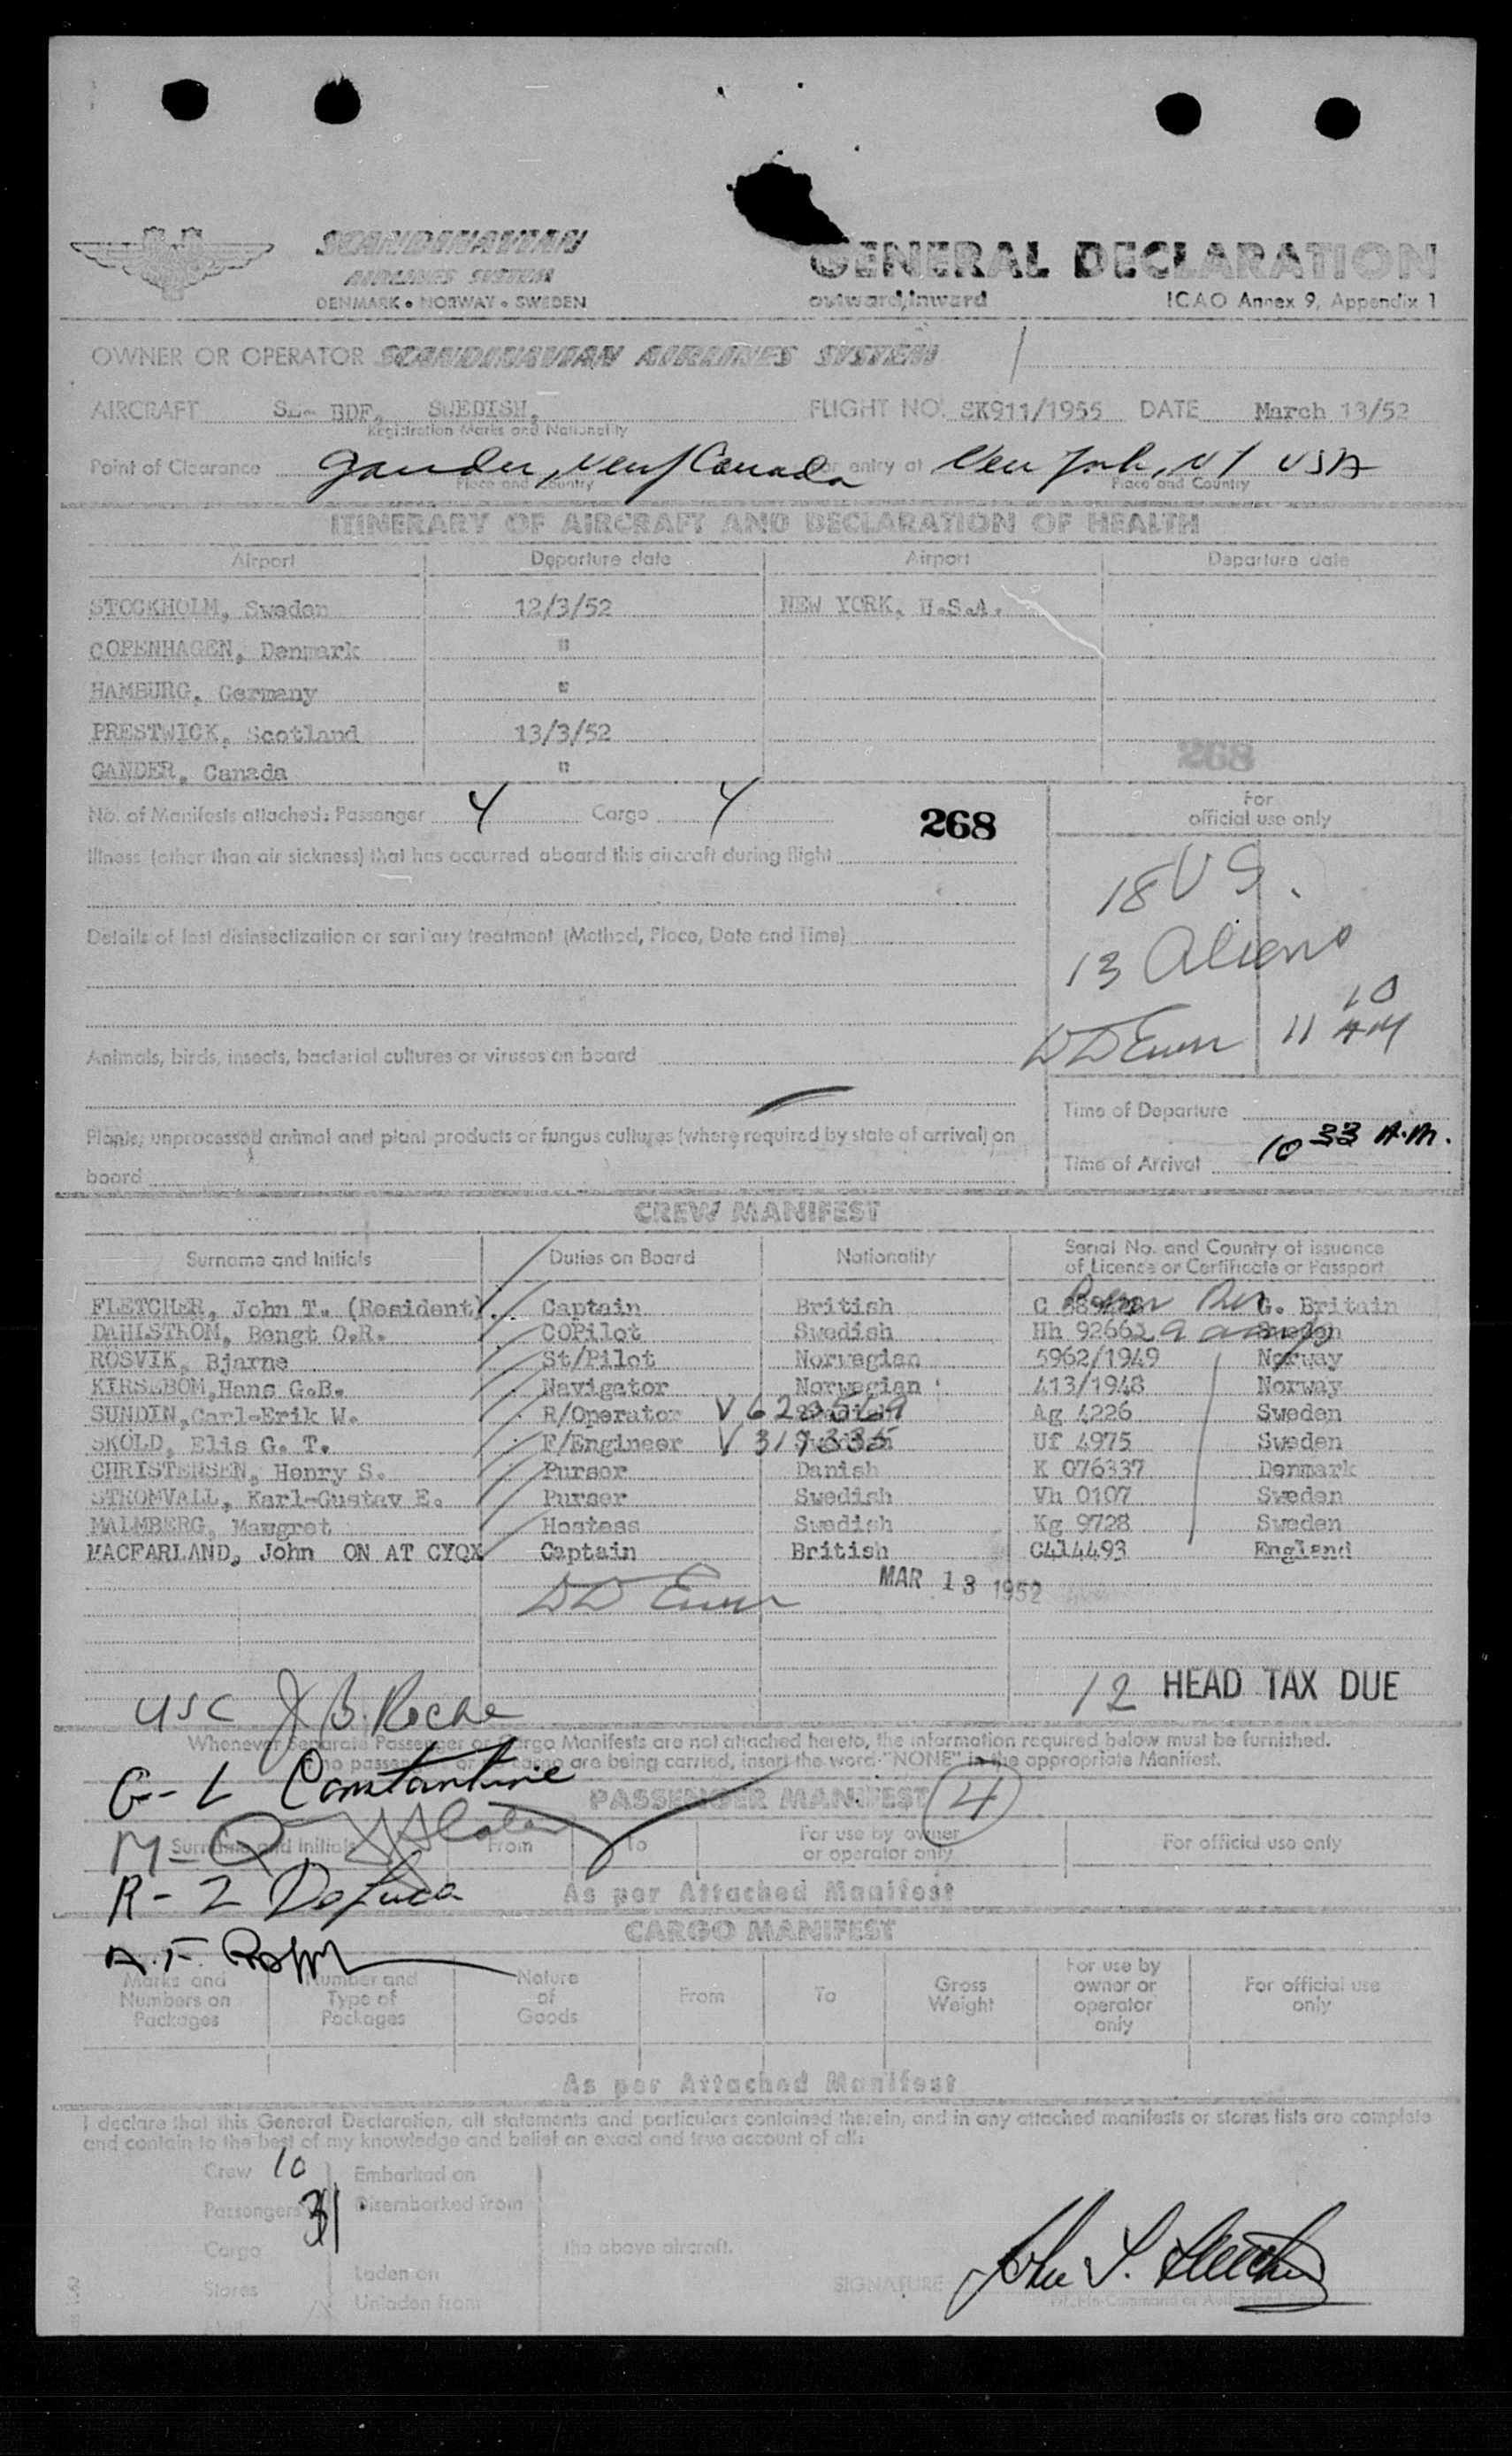 SCANDINAVIAN
AIRLINES SYSTEM
DENMARK • NORWAY • SWEDEN
GENERAL DECLARATION
outward, inward ICAO Annex 9, Appendix 1
OWNER OR OPERATOR SCANDINAVIAN AIRLINES SYSTEM
AIRCRAFT SE- BDF, SWEDISH, FLIGHT NO. SK911/1955 DATE March 13/52
Registration Marks and Nationality
Point of Clearance Gander, Newf Canada For entry at New York, NY USA
Place and Country Place and Country
ITINERARY OF AIRCRAFT AND DECLARATION OF HEALTH
Airport Departure date Airport Departure date
STOCKHOLM, Sweden 12/3/52 NEW YORK, U.S.A.
COPENHAGEN, Denmark "
HAMBURG, Germany "
PRESTWICK, Scotland 13/3/52
268
GANDER, Canada "
No. of Manifests attached: Passenger 4 Cargo 4 268
For
official use only
Illness (other than air sickness) that has occurred aboard this aircraft during flight
18 US.
Details of last disinsectization or sanitary treatment (Method, Place, Date and Time)
13 Aliens
11 10 AM
Animals, birds, insects, bacterial cultures or viruses on board
Time of Departure
Plants, unprocessed animal and plant products or fungus cultures (where required by state of arrival) on
board
Time of Arrival 10 33 A.M.
CREW MANIFEST
Surname and Initials Duties on Board Nationality Serial No. and Country of issuance
of Licence or Certificate or Passport
FLETCHER, John T. (Resident). Captain British C G. Britain
DAHLSTROM, Bengt O.R. COPilot Swedish Hh 92662 Sweden
ROSVIK, Bjarne St/Pilot Norwegian 5962/1949 Norway
KIRSEBOM, Hans G.B. Navigator Norwegian 413/1948 Norway
SUNDIN, Carl-Erik W. R/Operator Swedish Ag 4226 Sweden
SKOLD, Elis G. T. F/Engineer V 319335 Swedish Uf 4975 Sweden
CHRISTENSEN, Henry S. Purser Danish K 076337 Denmark
STROMVALL, Karl-Gustav E. Purser Swedish Vh 0107 Sweden
MALMBERG, Margret Hostess Swedish Kg 9728 Sweden
MACFARLAND, John ON AT CYQX Captain British C414493 England
MAR 13 1952
12 HEAD TAX DUE
USC J B. Roche
Whenever Separate Passenger or Cargo Manifests are not attached hereto, the information required below must be furnished.
no passengers or cargo are being carried, insert the word "NONE" in the appropriate Manifest.
G- L Constantine
PASSENGER MANIFEST 4
M-Q
Surname and Initials From To For use by owner
or operator only For official use only
R-2 DeLuca
As per Attached Manifest
CARGO MANIFEST
A.F.
Marks and
Numbers on
Packages Number and
Type of
Packages Nature
of
Goods From To Gross
Weight For use by
owner or
operator
only For official use
only
As per Attached Manifest
I declare that this General Declaration, all statements and particulars contained therein, and in any attached manifests or stores lists are complete
and contain to the best of my knowledge and belief an exact and true account of all:
Crew 10 Embarked on
Passengers 31 Disembarked from
Cargo the above aircraft.
Laden on
Stores
Unladen from
SIGNATURE John T. Fletcher